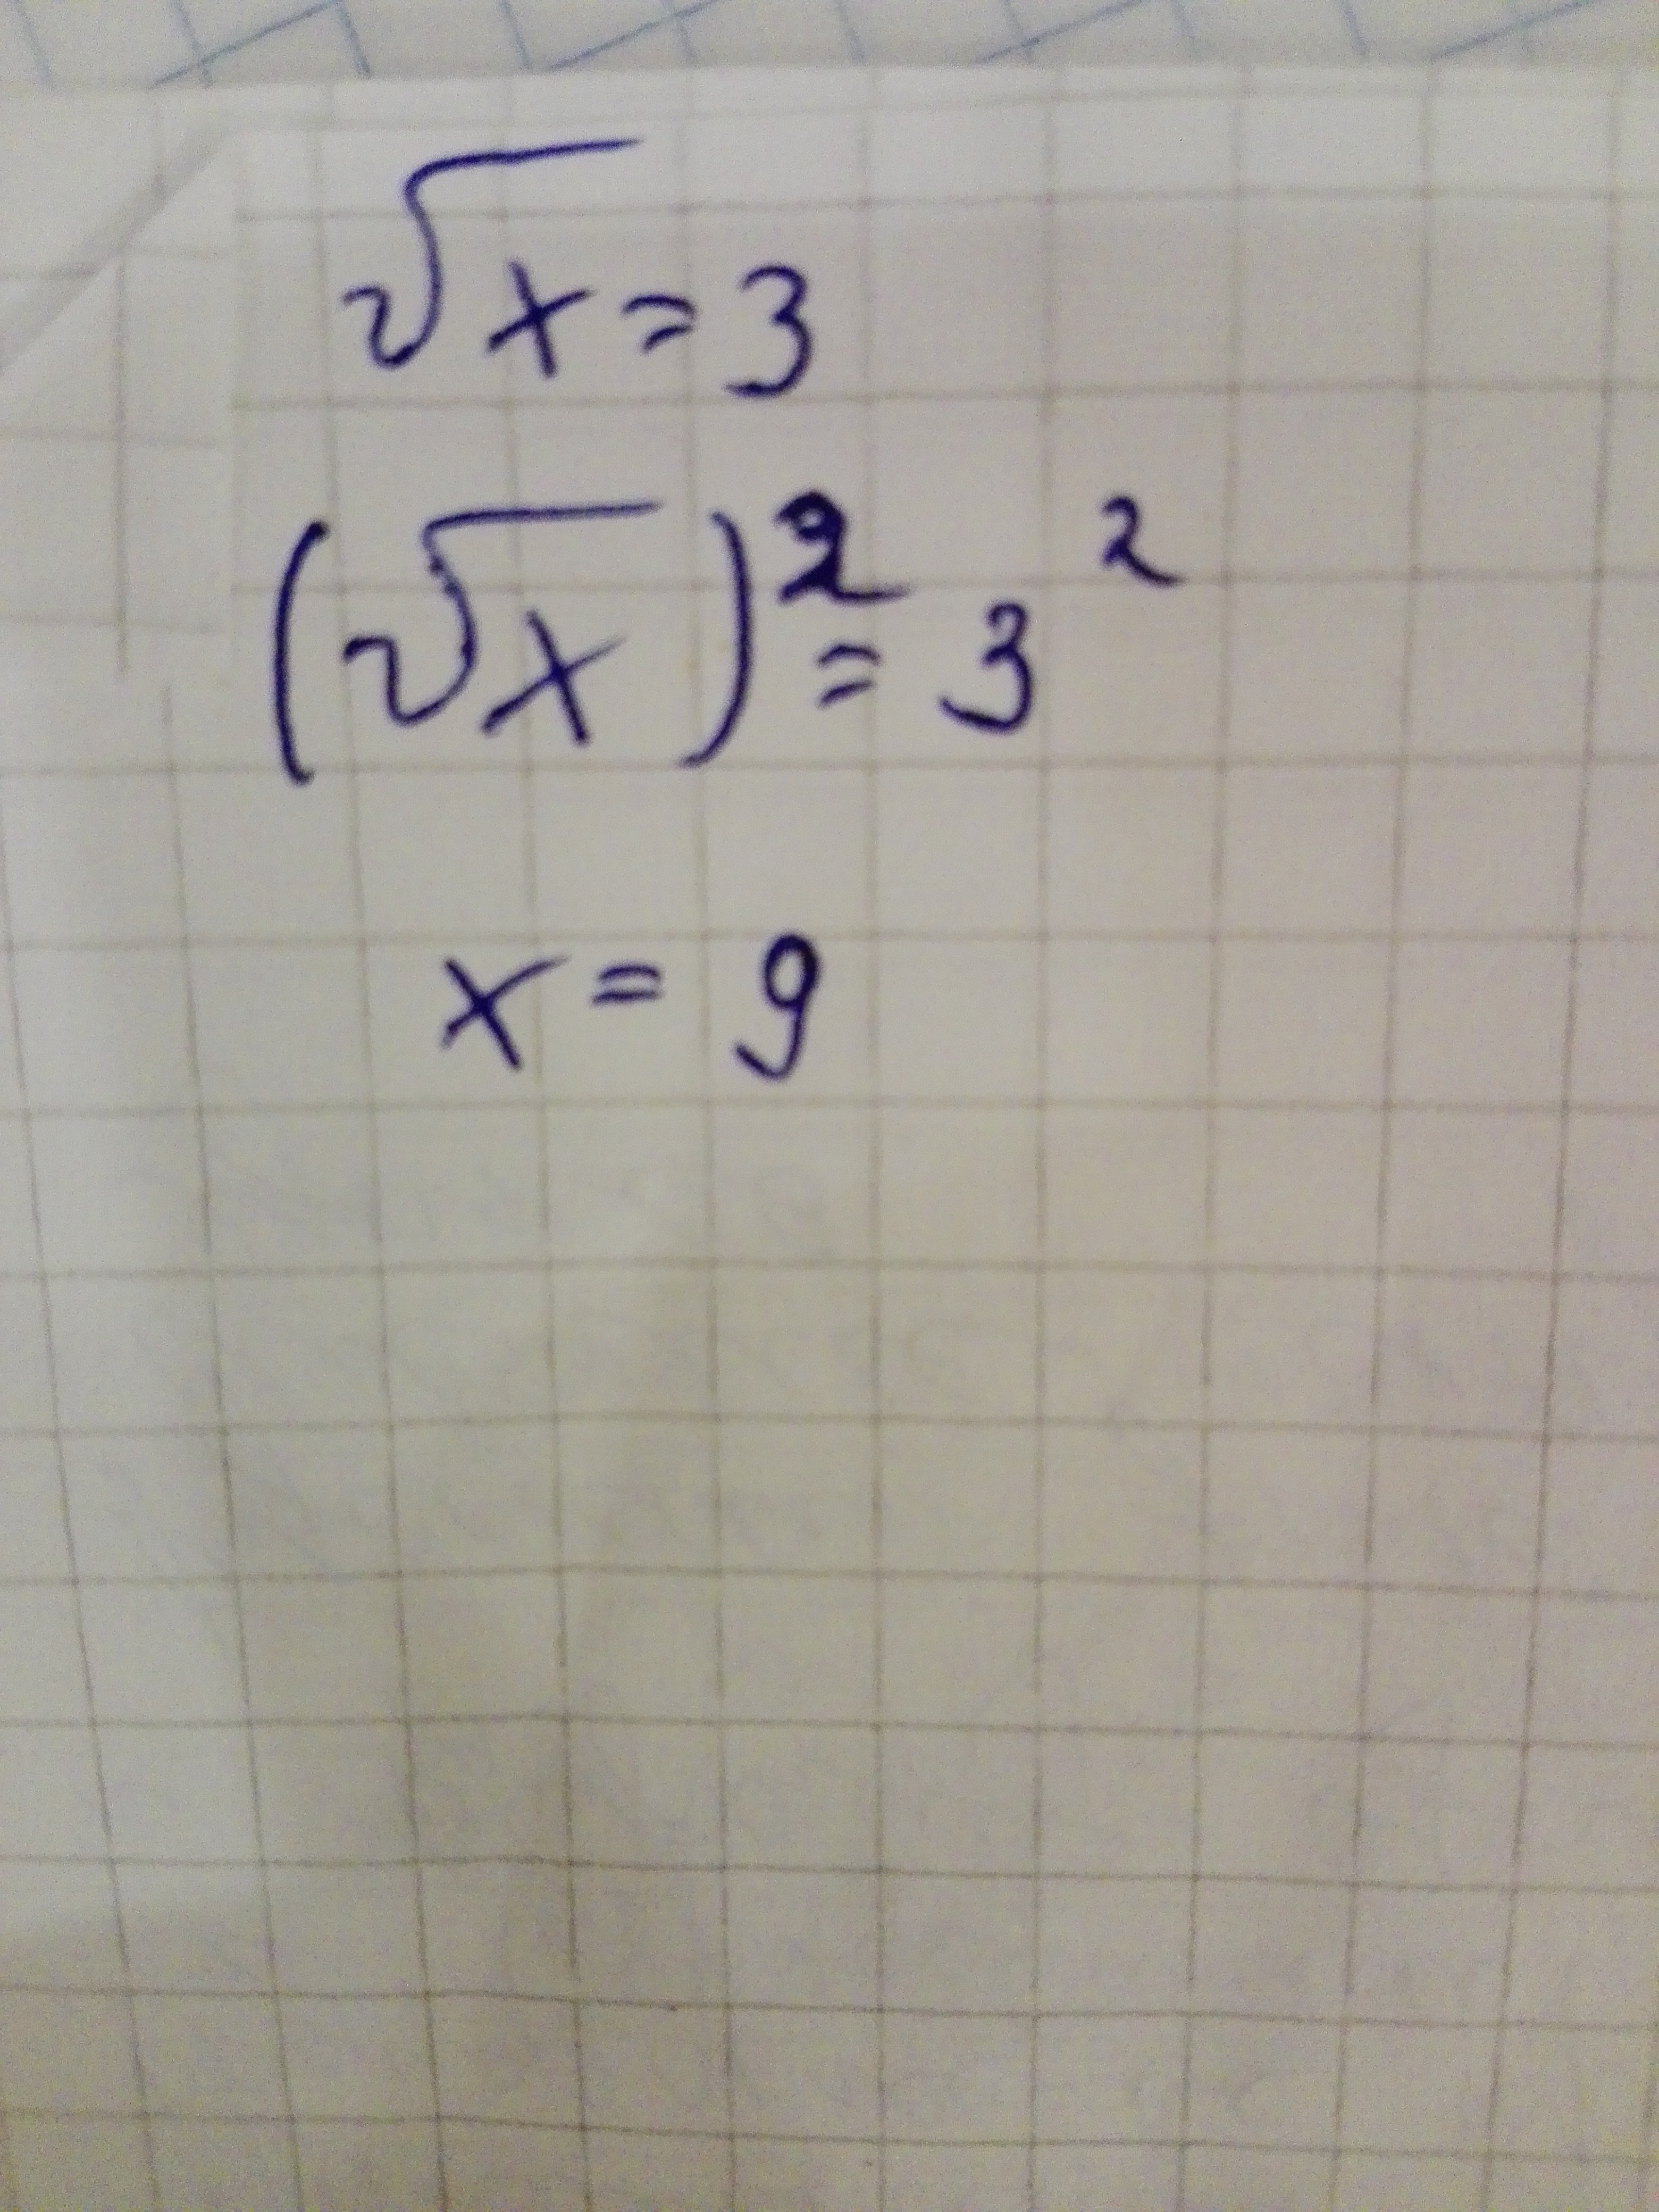 √x = 3
(√x)² = 3²
x = 9